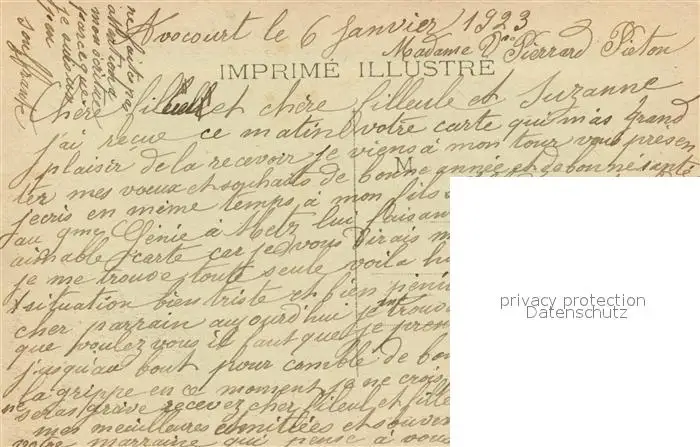 Avocourt le 6 Janvier 1923
Madame Vve Pierrard Pieton
IMPRIMÉ ILLUSTRE
Chère filleul et chère filleule et Suzanne
j'ai reçue ce matin votre carte qui m'as grand
plaisir de la recevoir je viens à mon tour vous présen
ter mes vœux et souhaits de bonne année et de bonne santé
M
jecris en même temps à mon fils
au Génie à Metz lui faisan
aimable carte car je vous dirais
je me trouve toute seule voila
situation bien triste et bien
cher parrain aujourd'hui trouv
que voulez vous il faut que je pren
jusqu'au bout pour comble de
la grippe en ce moment je ne crois
ne seras grave recevez cher fileul et fille
mes meilleures amitiées et souven
votre marraine qui pense à vous
ne faites
attention
mon écriture
parceque
je suis
souffrante
privacy protection
Datenschutz